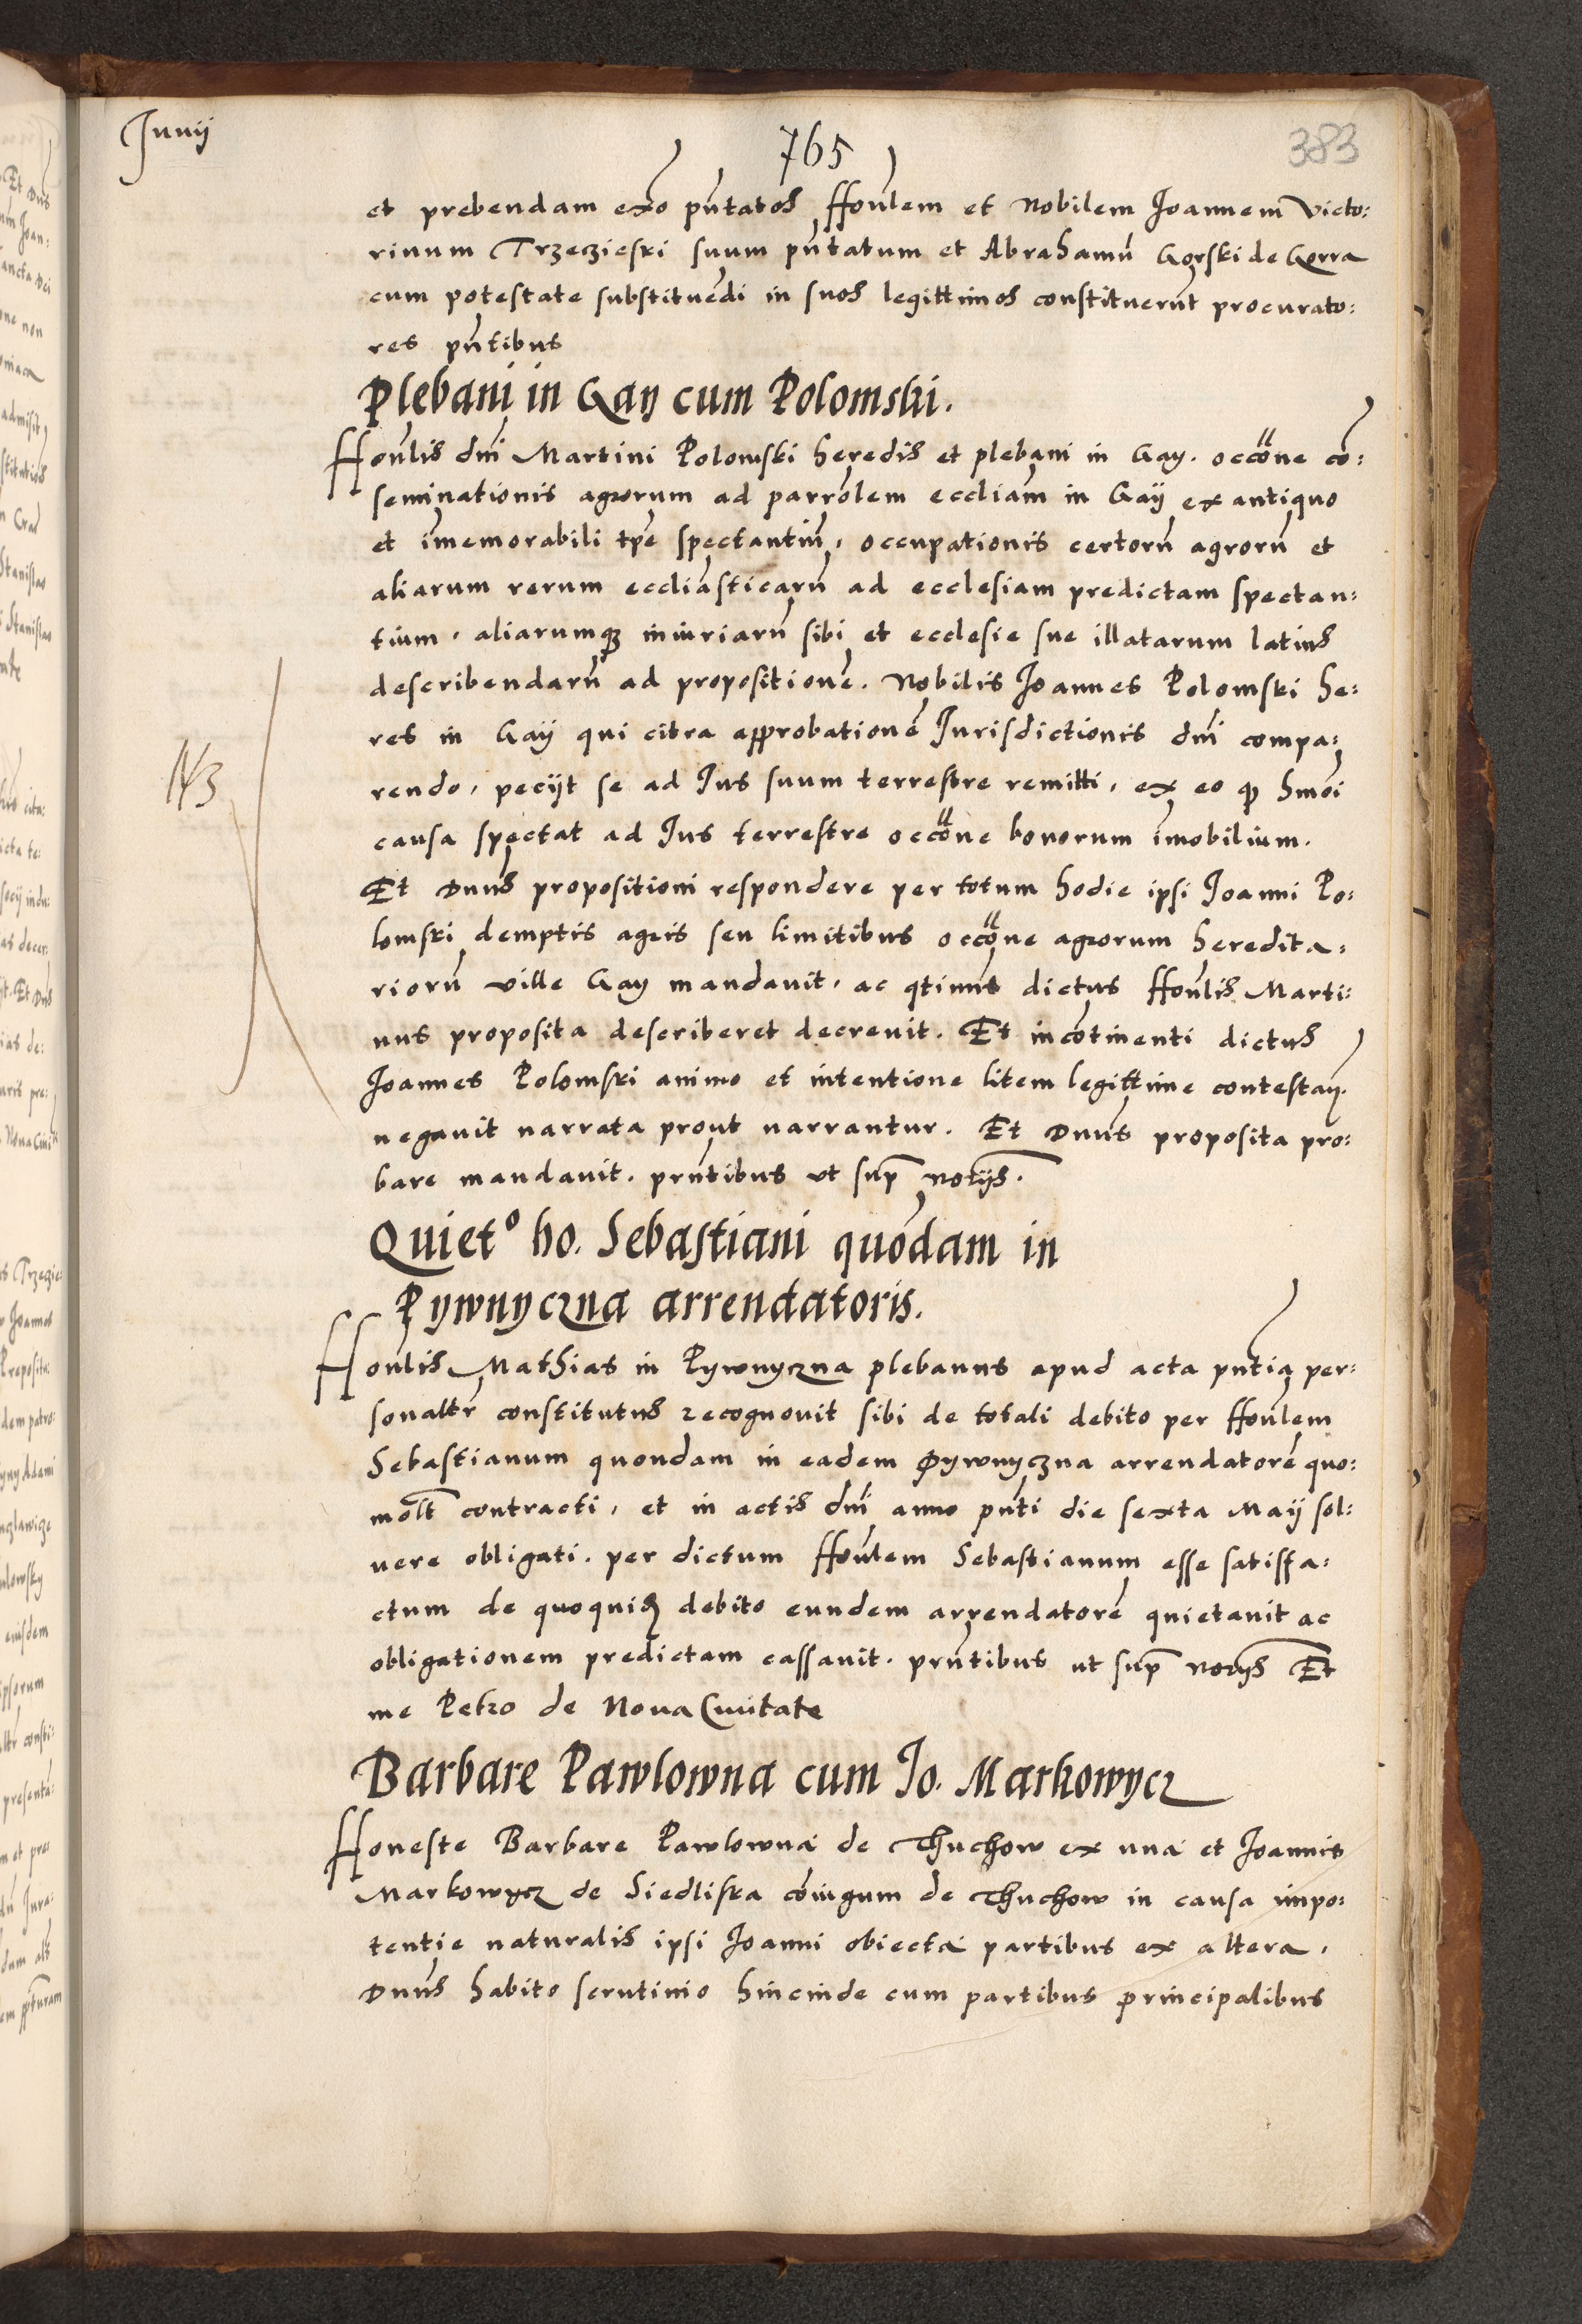 Junij
765
383
et prebendam exº pñtatos Hoñlem et Nobilem Joannem Victo:
rinum Trzeczieski suum pñtatum et Abrahamũ Gorski de Gorra
cum potestate substituẽdi in suos legittimos constituerũt procurato:
res pñtibus
Plebani in Gay cum Polomski.
Hoñlis dñi Martini Polomski heredis et plebani in Gay. occõne cõ:
seminationis agrorum ad parrõlem eccliam in Gaÿ ex antiquo
et ĩmemorabili tp̃e spectantiũ, occupationis certorũ agrorũ et
aliarum rerum eccliasticarũ ad ecclesiam predictam spectan:
tium, aliarumqȝ iniuriarũ sibi et ecclesie sue illatarum latius
describendarũ ad propositionẽ. Nobilis Joannes Polomski he:
res in Gaÿ qui citra approbationẽ Jurisdictionis dñi compa:
rendo, pecijt se ad Jus suum terrestre remitti, ex eo qꝫ hmõi
causa spectat ad Jus terrestre occõne bonorum ĩmobilium.
Et Dnũs propositioni respondere per totum hodie ipsi Joanni Po:
lomski demptis agris seu limitibus occõne agrorum heredita:
riorũ ville Gay mandauit, ac qtinus dictus Hoñlis Marti:
nus proposita describeret decreuit. Et incõtinenti dictus
Joannes Polomski animo et intentione litem legittime contestaȝ.
negauit narrata prout narrantur. Et Dnũs proposita pro:
bare mandauit. prñtibus ut sup̃ norijs.
143
Quietº ho. Sebastiani quõdam in
Pywnyczna arrendatoris.
Hoñlis Mathias in Pywnyczna plebanus apud acta pñtia per:
sonalr̃ constitutus recognouit sibi de totali debito per Hoñlem
Sebastianum quondam in eadem Pywnyczna arrendatorẽ quo:
molt̃ contracti, et in actis dñi anno pñti die sexta Maij sol:
uere obligati. per dictum Hoñlem Sebastianum esse satisfa:
ctum de quoquiȝ debito eundem arrendatorẽ quietauit ac
obligationem predictam cassauit. prñtibus ut sup̃ norijs Et
me Petro de Noua Ciuitate
Barbare Pawlowna cum Jo. Markowycz
Honeste Barbare Pawlowna de Thuchow ex una et Joannis
Markowycz de Siedliska cõiugum de Thuchow in causa impo:
tentie naturalis ipsi Joanni obiecta partibus ex altera,
Dnũs habito scrutinio hincinde cum partibus principalibus